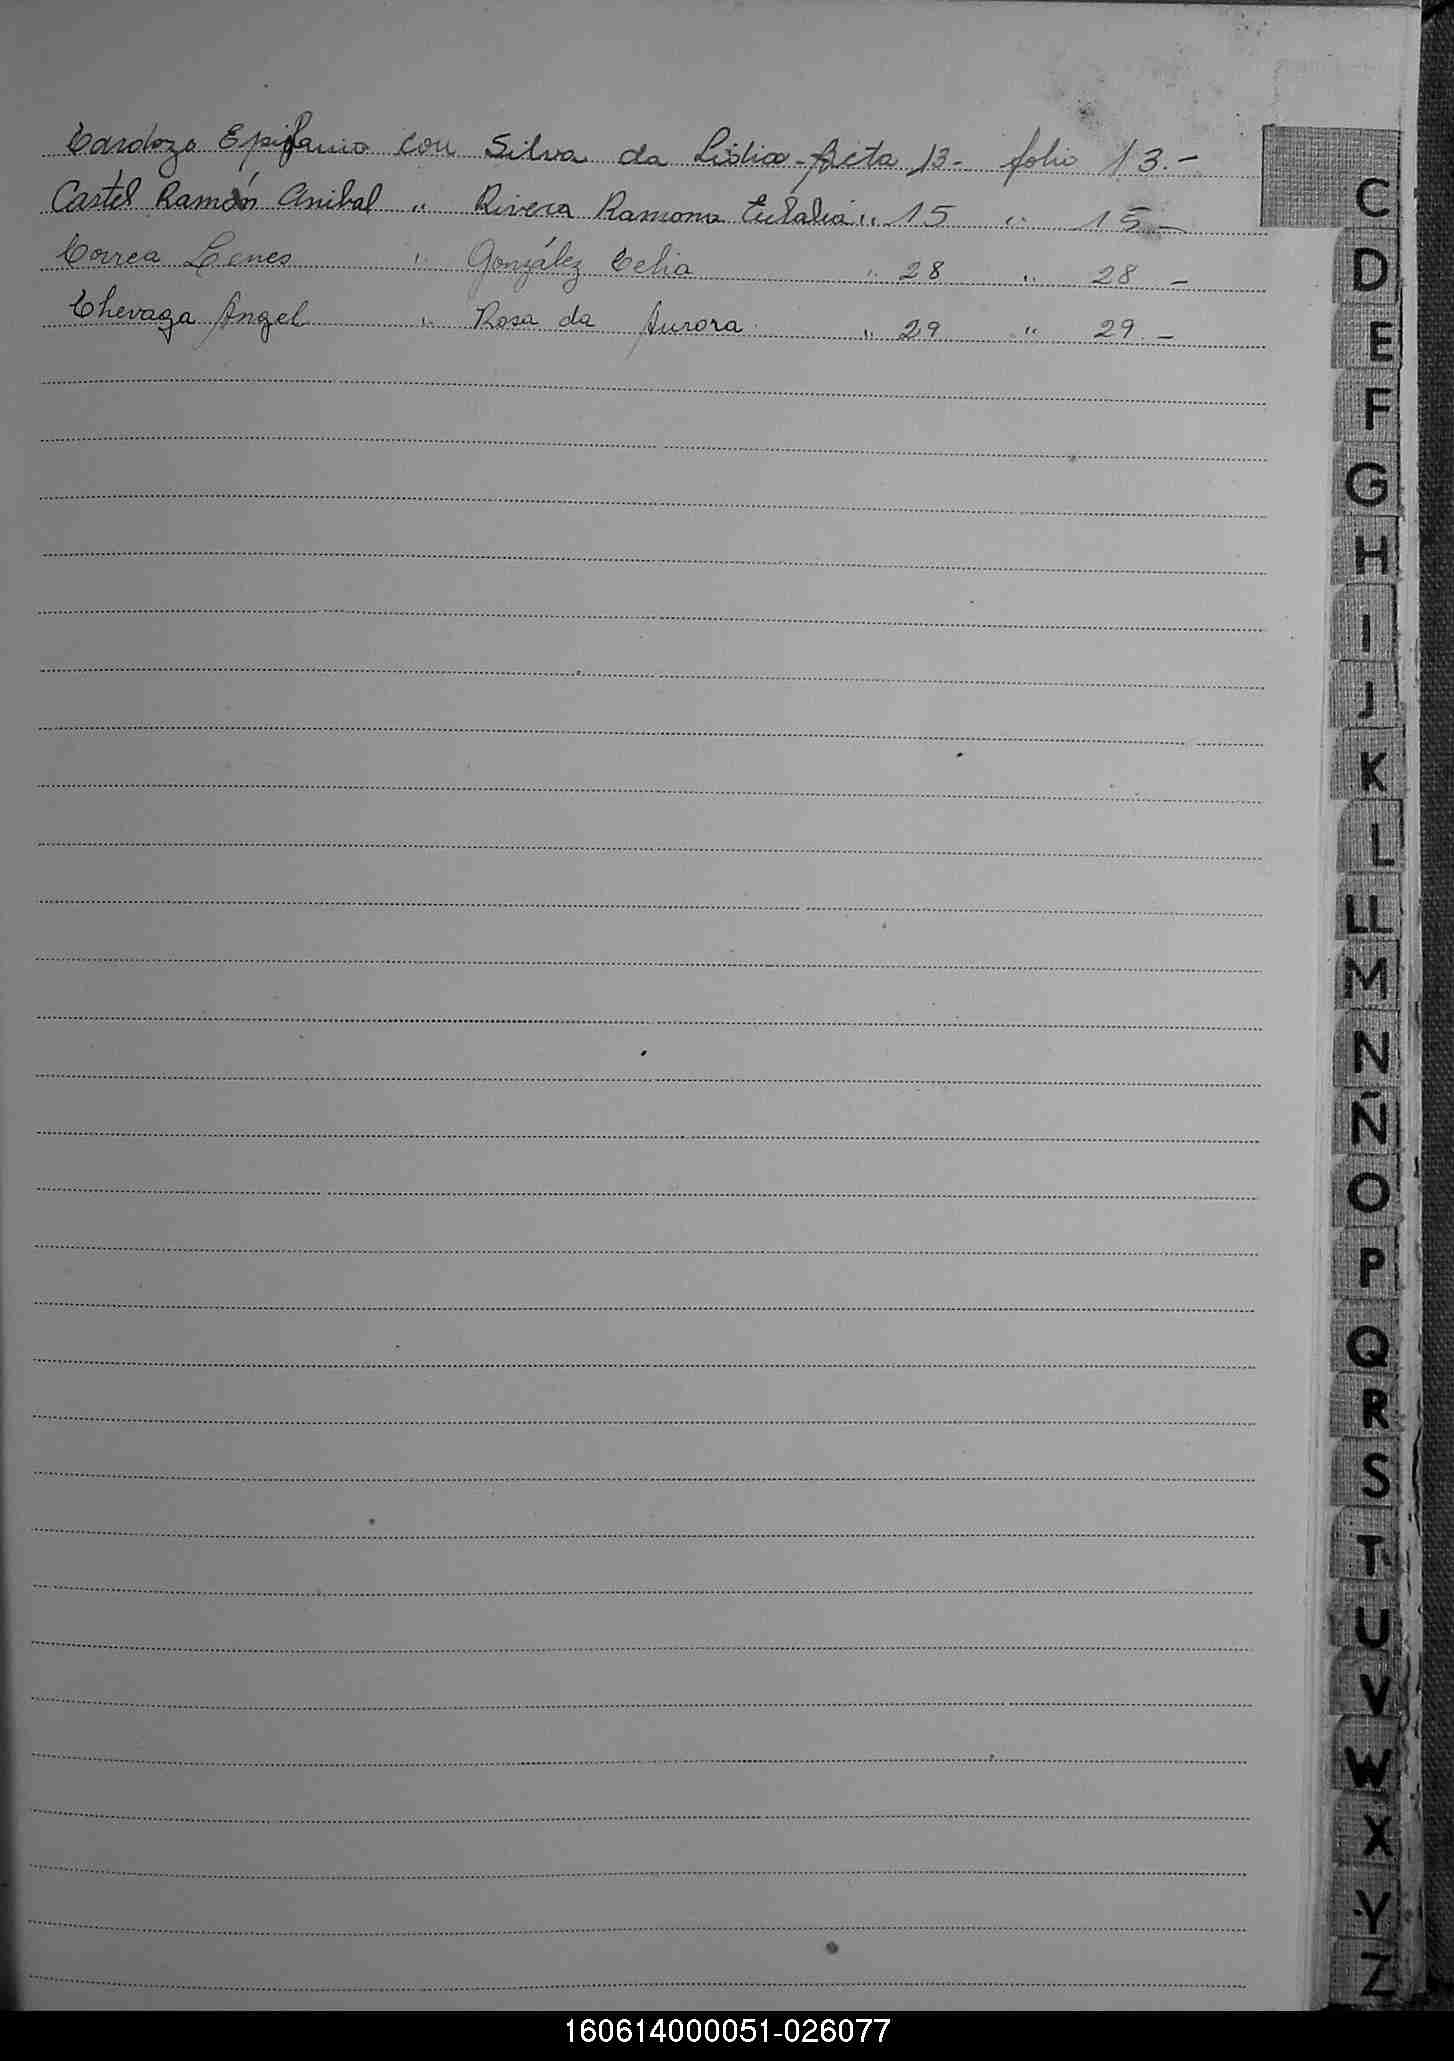 Cardozo Epifanio con Silva da Lidia - Acta 13 - folio 13.-
Castel Ramón Anibal " Rivera Ramona Eulalia " 15 " 15 -
Correa Lenes " González Celia " 28 " 28 -
Chevaga Angel " Rosa da Aurora " 29 " 29 -
C
D
E
F
G
H
I
J
K
L
LL
M
N
Ñ
O
P
Q
R
S
T
U
V
W
X
Y
Z
160614000051-026077